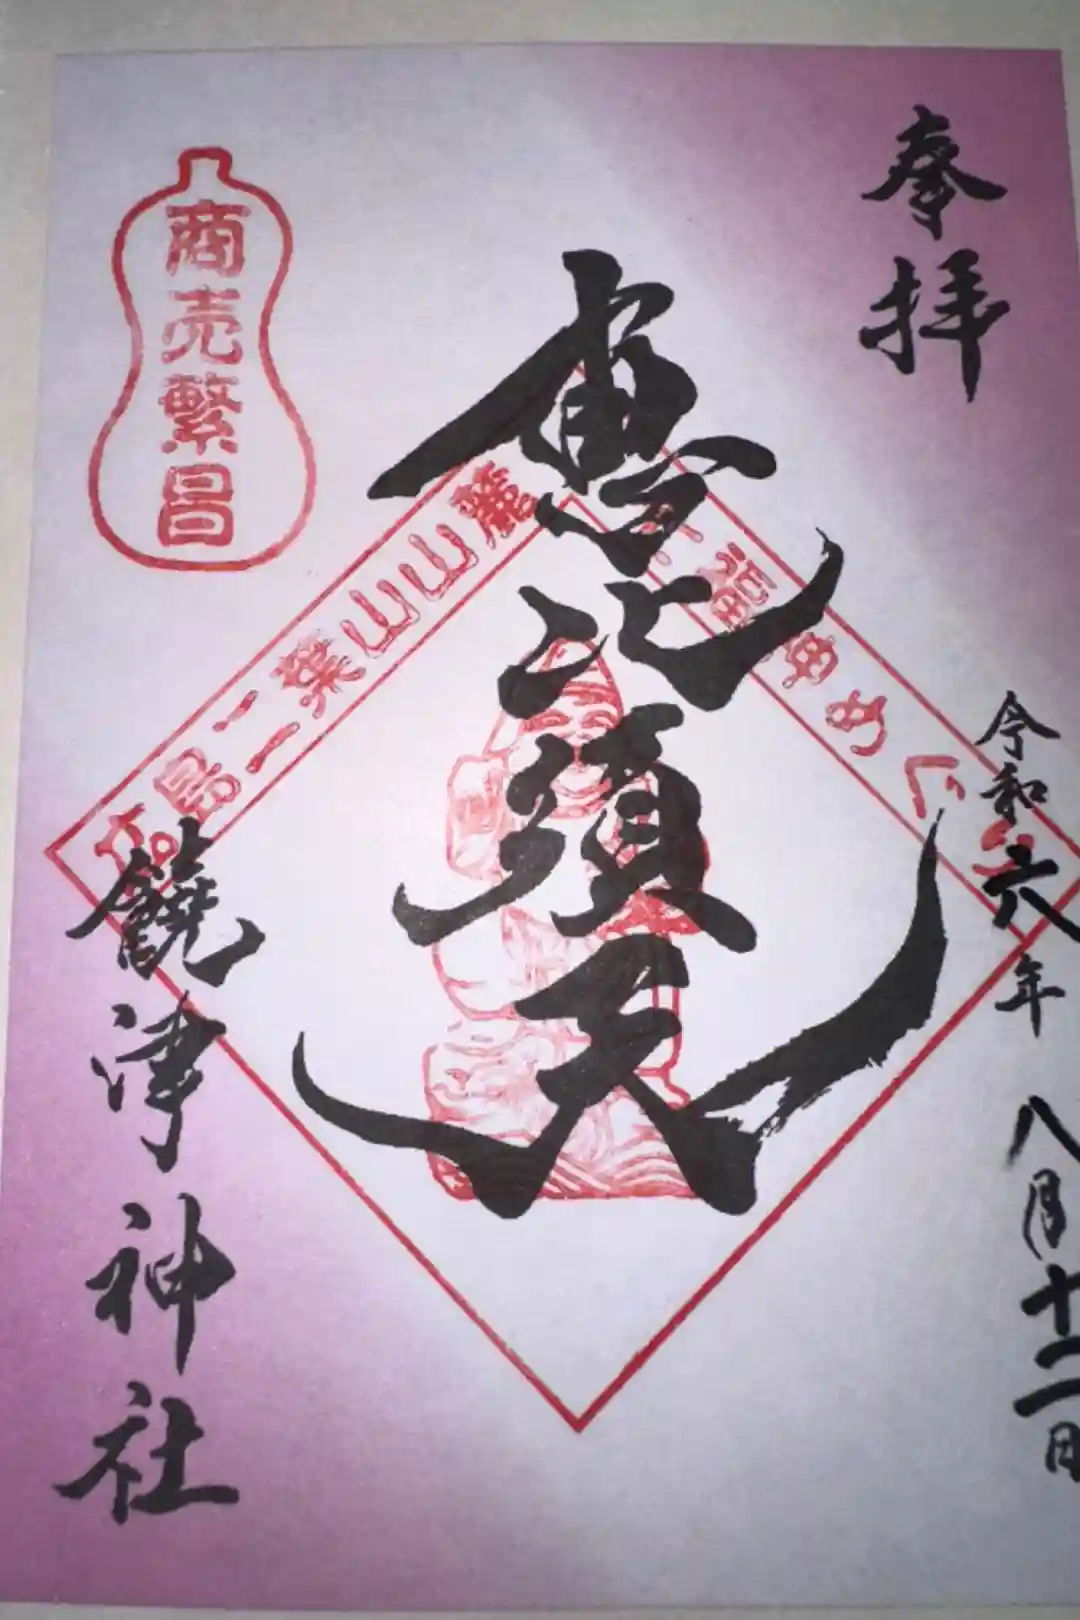 奉拝
令和六年 八月十二日
恵比須天
商売繁昌
広島二葉山山麓
七福神めぐり
饒津神社